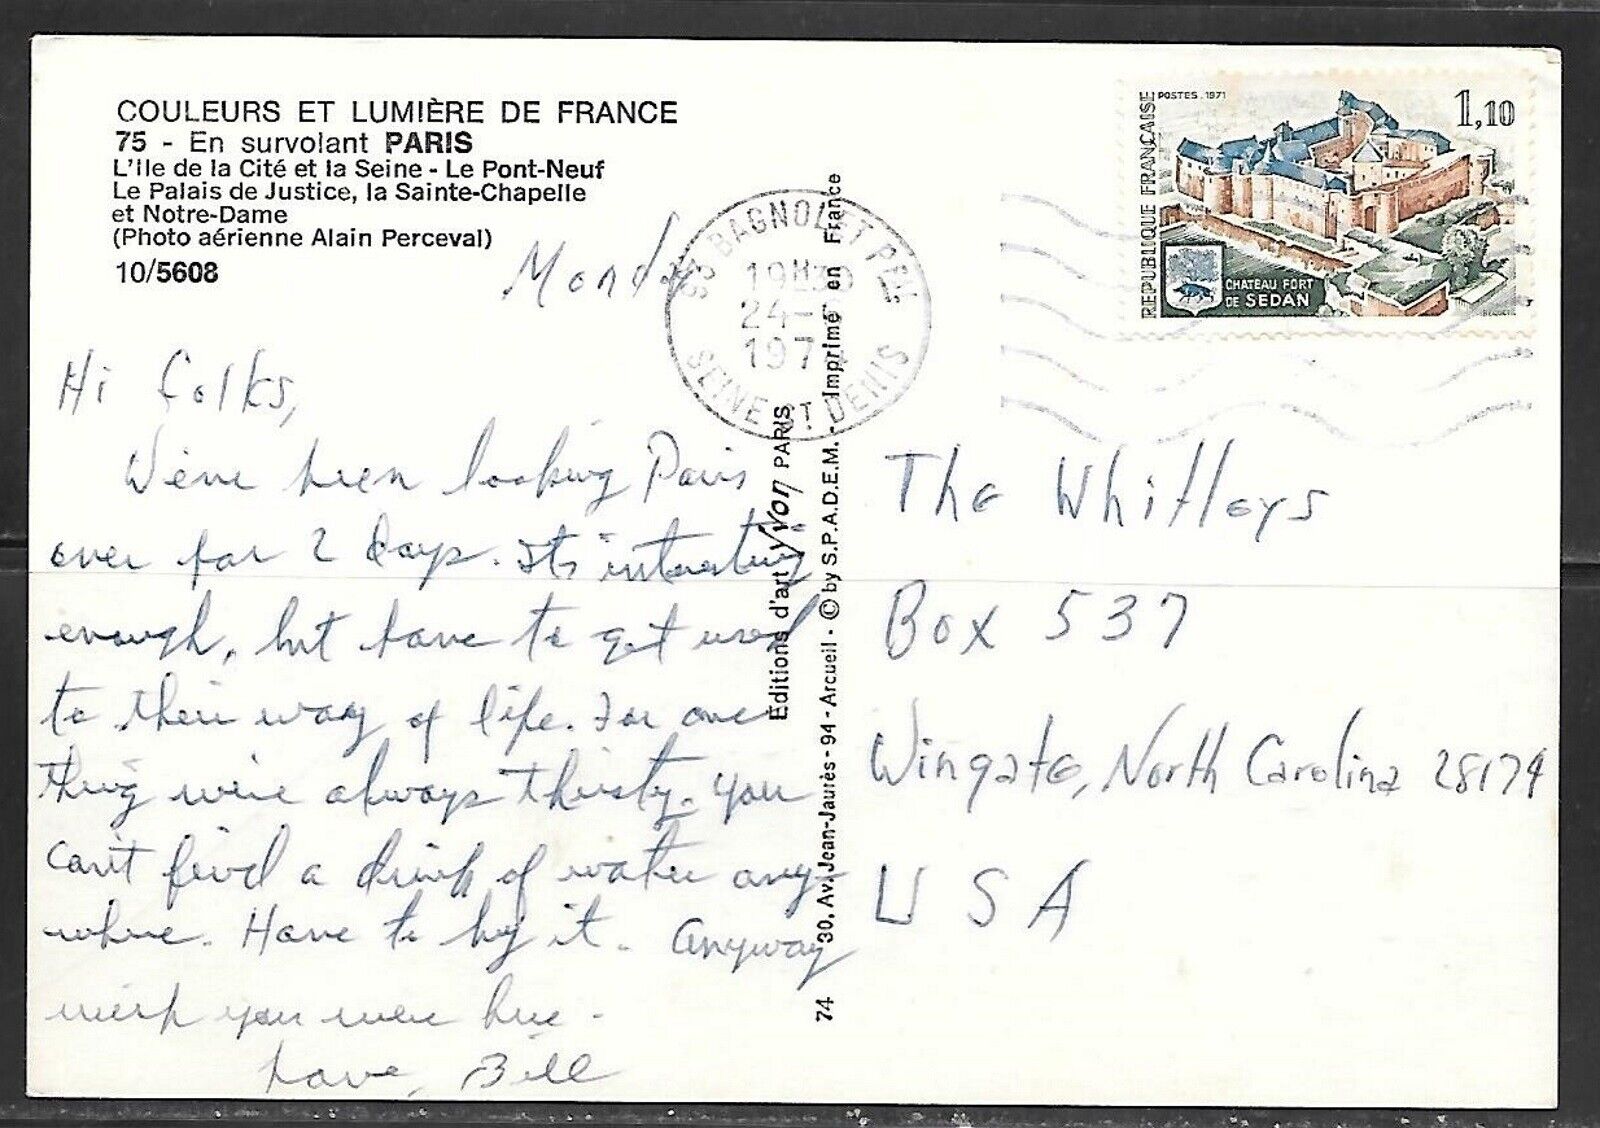 COULEURS ET LUMIÈRE DE FRANCE
75 - En survolant PARIS
L'Ile de la Cité et la Seine - Le Pont-Neuf
Le Palais de Justice, la Sainte-Chapelle
et Notre-Dame
(Photo aérienne Alain Perceval)
10/5608
Monday
Hi Folks,
We've been looking Paris
over for 2 days. Its interesting
enough, but have to get used
to their way of life. For one
thing we're always thirsty. You
can't find a drink of water any-
where. Have to buy it. Anyway
wish you were here.
Love, Bill
93 BAGNOLET PPAL
19H30
24-
1974
SEINE ST DENIS
Editions d'art Yvon PARIS
74 30, Av. Jean-Jaurès - 94 - Arcueil - © by S.P.A.D.E.M. - Imprimé en France
POSTES . 1971
1,10
REPUBLIQUE FRANÇAISE
CHATEAU FORT
DE SEDAN
BEQUET
The Whitleys
Box 537
Wingate, North Carolina 28174
USA